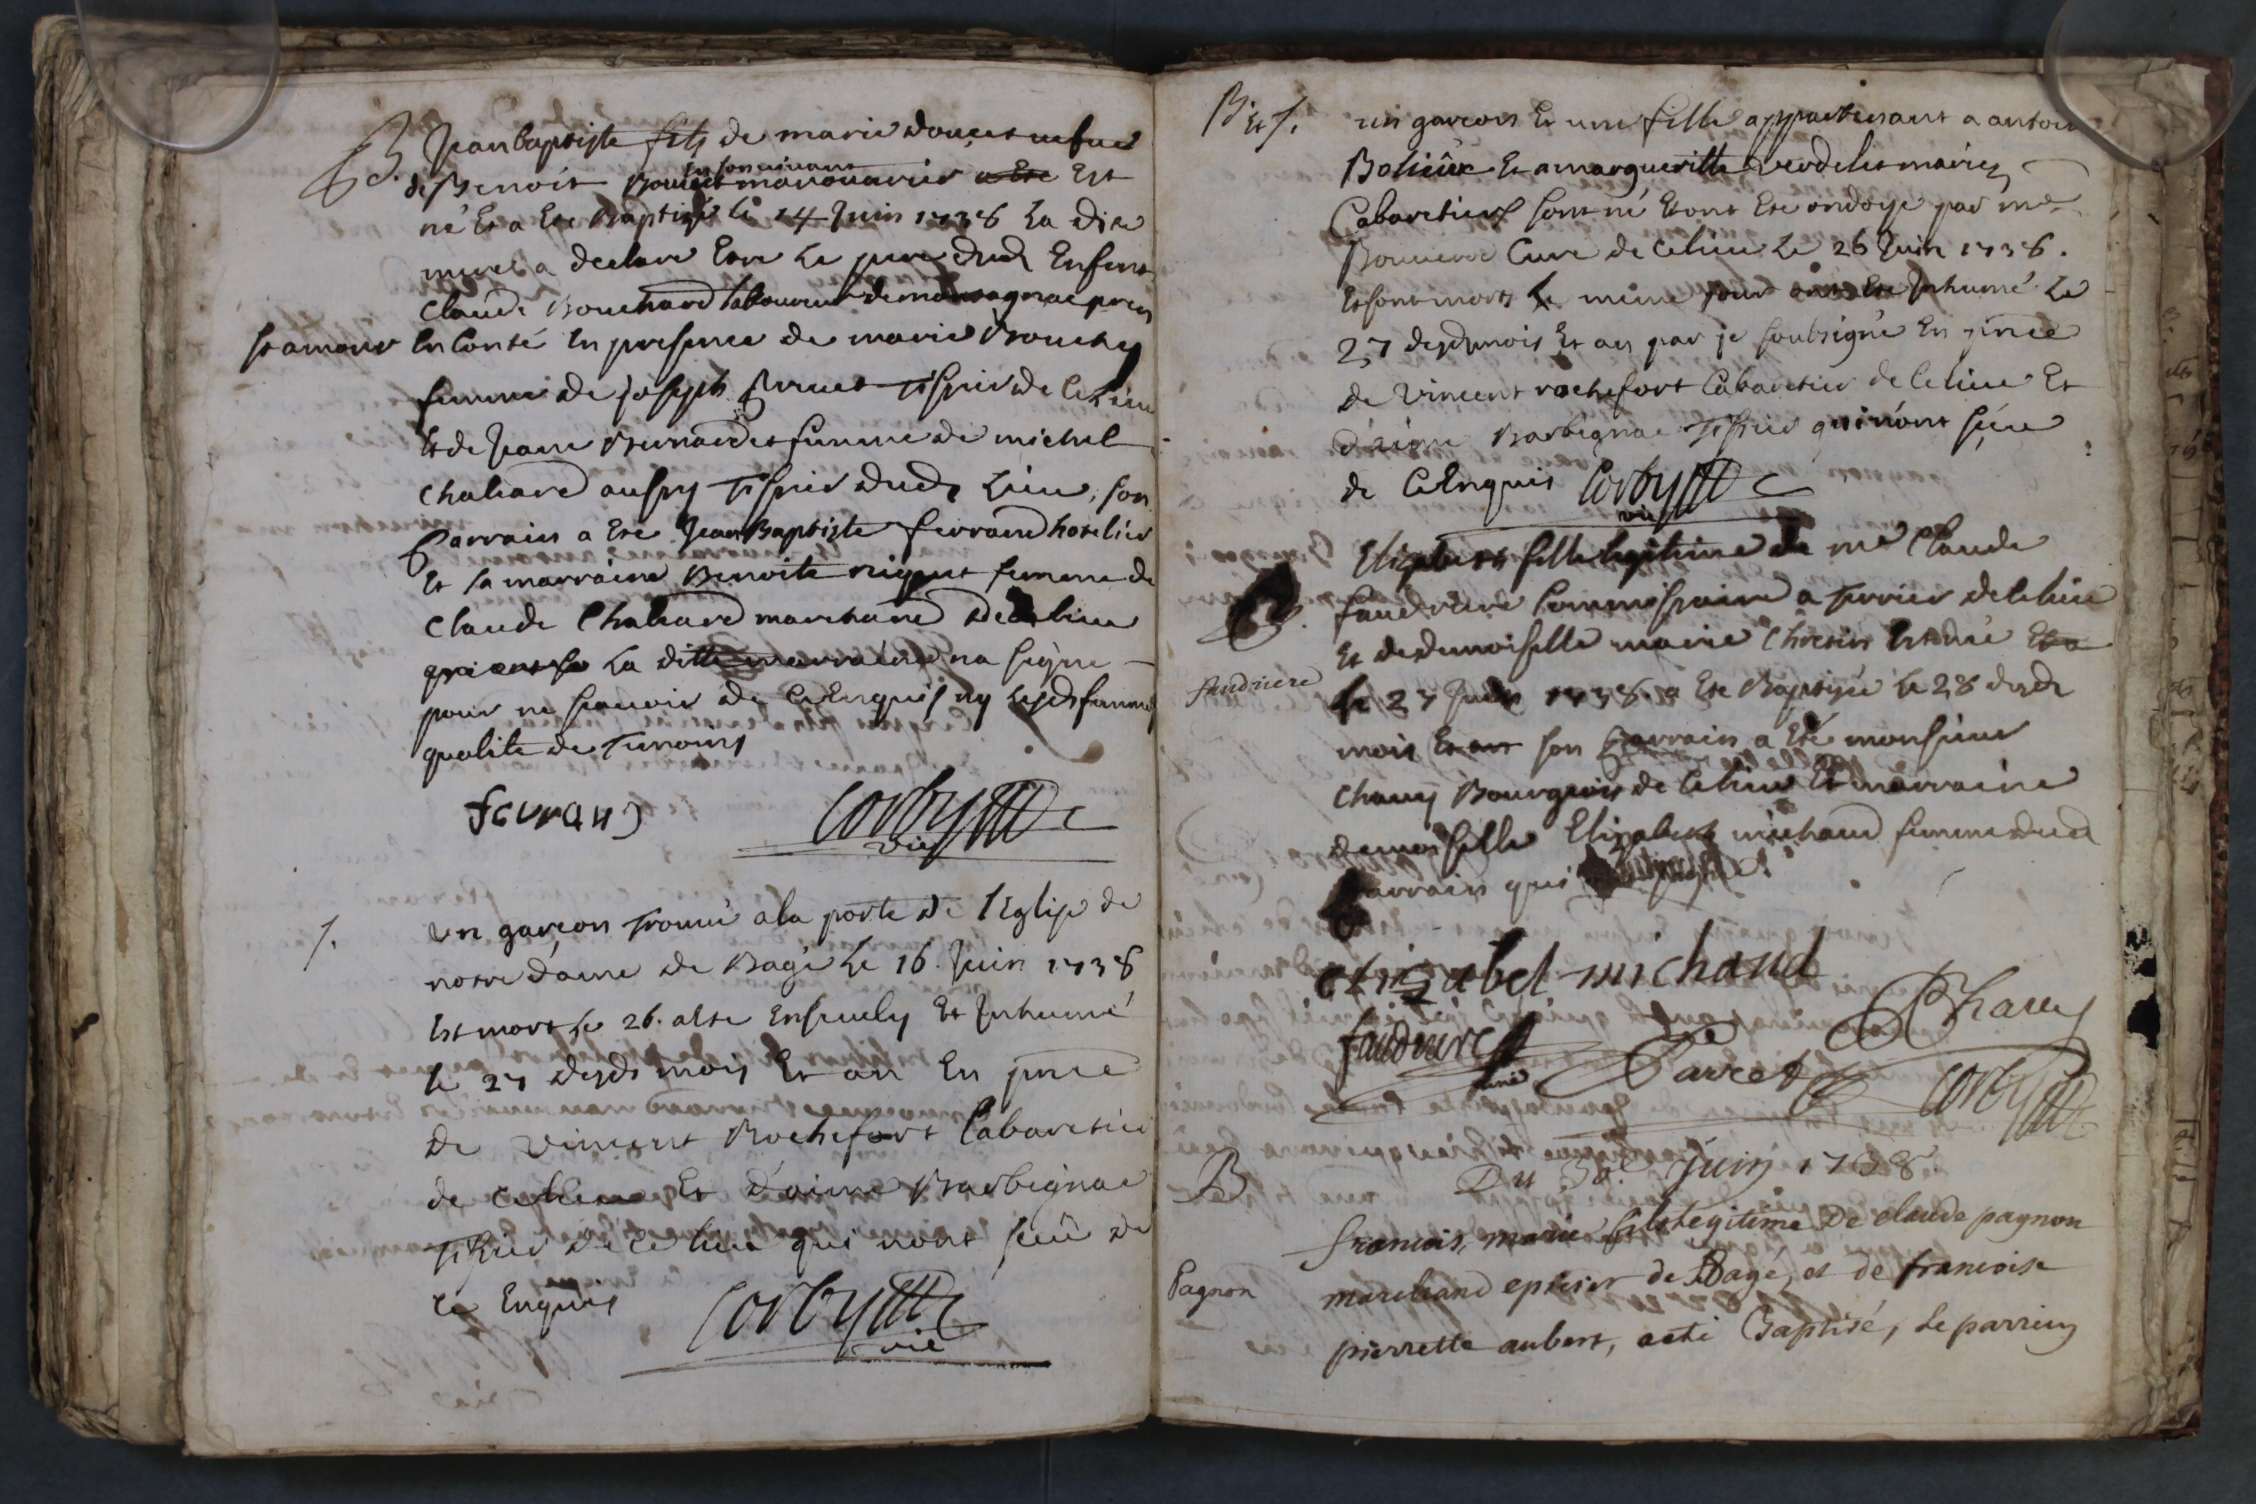 B. Jean baptiste fils de marie doucet vefue
de Benoit Bouvet en son vivant manouvrier a Eté Est
né Et a Eté Baptisé le 14 Juin 1738 La dite
mere a declare Estre le pere dud Enfent
claude Bouchard laboureur de marsagnac pres
st amour En Conté En presence de marie Brouchy
femme de Joseph Brunet Tissier de Ce lieu
Et de Jeane Bernardet femme de michel
Chaliard aussy Tissier dud Lieu, son
Parrain a Eté Jean Baptiste ferrand hotelier
Et sa marraine Benoite niguet femme de
Claude Chaliard marchand de Ce lieu
qui ont se La ditte marraine na signe
pour ne scavoir de Ce Enquis ny lesds femmes
qualité de Temoins
ferrand
Corbytte
vic
/. un garcon Trouvé a la porte de l'Eglise de
notre dame de Bagé le 16. Juin 1738
Est mort le 26. a Eté Ensevely Et Inhumé
le 27 desds mois Et an En pnce
de vincent Rochefort Cabaretier
de Ce lieu Et d'aime Barbignac
Tissier de Ce lieu qui n'ont sceü de
Ce Enquis
Corbytte
vic
B Et /. un garcon Et une fille appartenant a antoine
Bolieûx Et a margueritte verdelet mariez
Cabaretiers sont né Et ont Eté ondoyé par mre
Bouveroc Curé de Ce lieu Le 26 Juin 1738.
Et sont morts Le même jour ont Eté Inhumé Le
27 desds mois Et an par je soubsigné En pnce
de vincent rochefort Cabaretier de Ce lieu Et
d'aime Barbignac Tissier qui n'ont sceu
de Ce Enquis Corbytte
vic
B. Elizabeth fille legitime de me Claude
faudriere Commissaire a Terrier de Ce lieu
Et de demoiselle marie Chretin Est né Et a
faudriere
le 27 Juin 1738. a Eté Baptisée le 28 desds
mois Et an son Parrain a Eté monsieur
Chavy Bourgeois de Ce lieu Et marraine
demoiselle Elizabeth michaud femme dud
Parrain qui
elizabet michaud
PChavy
faudriere
Parcet
curé
Corbytte
B
Du 30.e Juin 1738
francois, marie fils legitime De claude pagnon
Pagnon
marchand epicier de Bagé, et de francoise
pierrette aubert, a eté Baptisé, Le parrein